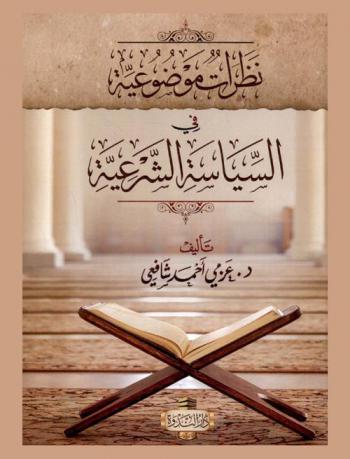 نَظَرَاتٌ مَوْضُوعِيَّة
فِي
السِّيَاسَةِ الشَّرْعِيَّةِ
تَأليف
د. عزمي أحمد شافعي
دار الندوة